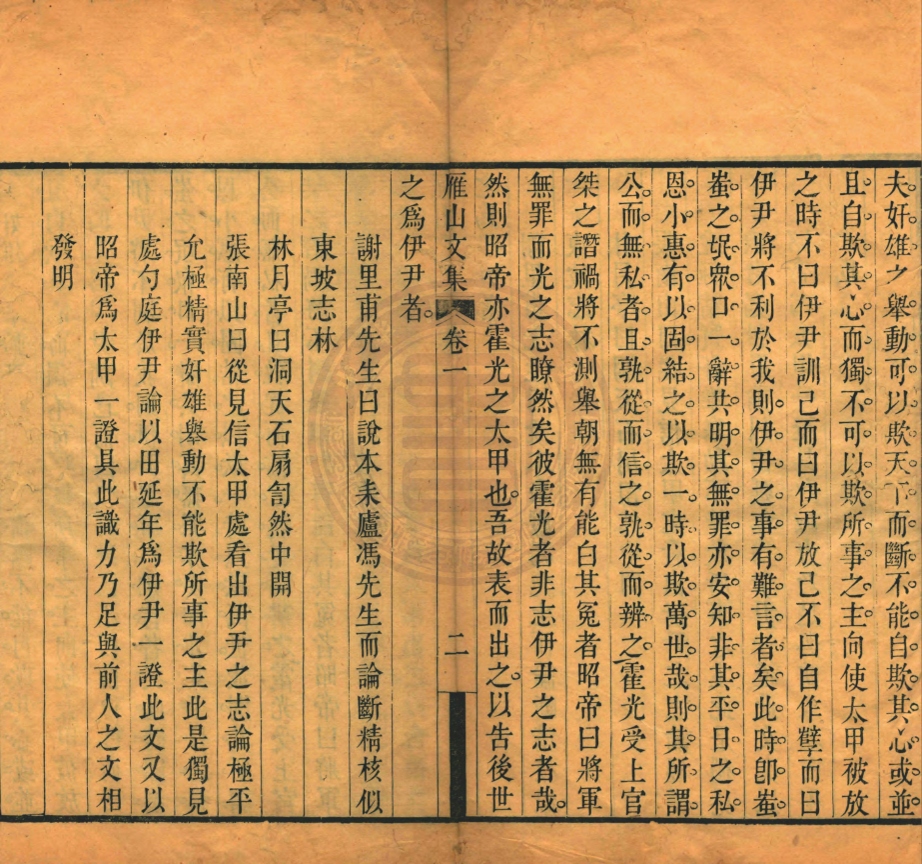 夫奸雄之舉動可以欺天下而斷不能自欺其心或並
且自欺其心而獨不可以欺所事之主向使太甲被放
之時不曰伊尹訓己而曰伊尹放己不曰自作孽而曰
伊尹將不利於我則伊尹之事有難言者矣此時卽蚩
蚩之氓衆口一辭共明其無罪亦安知非其平日之私
恩小惠有以固結之以欺一時以欺萬世哉則其所謂
公而無私者且孰從而信之孰從而辨之霍光受上官
桀之譖禍將不測舉朝無有能白其冤者昭帝曰將軍
無罪而光之志瞭然矣彼霍光者非志伊尹之志者哉
然則昭帝亦霍光之太甲也吾故表而出之以告後世
雁山文集 卷一 二
之爲伊尹者
謝里甫先生曰說本耒廬馮先生而論斷精核似
東坡志林
林月亭曰洞天石扇訇然中開
張南山曰從見信太甲處看出伊尹之志論極平
允極精實奸雄舉動不能欺所事之主此是獨見
處勺庭伊尹論以田延年爲伊尹一證此文又以
昭帝爲太甲一證具此識力乃足與前人之文相
發明